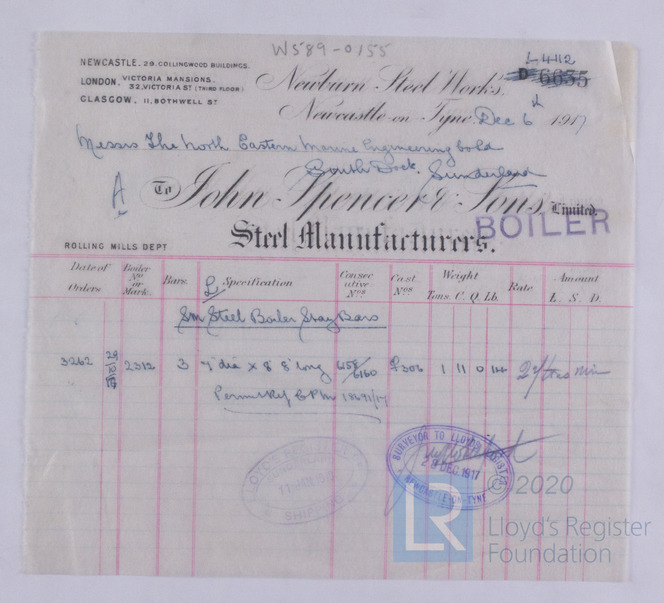 W589-0155
NEWCASTLE. 29. COLLINGWOOD BUILDINGS.
LONDON. VICTORIA MANSIONS.
32, VICTORIA ST (THIRD FLOOR)
GLASGOW. 11, BOTHWELL ST
L 4412
D 6655
Newburn Steel Works,
Newcastle-on-Tyne Dec 6th 1917
Messrs The North Eastern Marine Engineering Co Ld
South Dock, Sunderland
A
To John Spencer & Sons, Limited.
BOILER
Steel Manufacturers.
ROLLING MILLS DEPT
Date of Orders Boiler No or Mark. Bars. Specification Consecutive Nos Cast Nos Weight Tons. C. Q. Lb. Rate Amount L. S. D.
L
Sm Steel Boiler Stay Bars
3262 2312 3 dia x 8' 8" long 6160 306 1 11 0 14
LLOYD'S REGISTER
SHIPPING
SURVEYOR TO LLOYD'S REGISTER
28 DEC 1917
NEWCASTLE-ON-TYNE
LR
© 2020
Lloyd's Register
Foundation